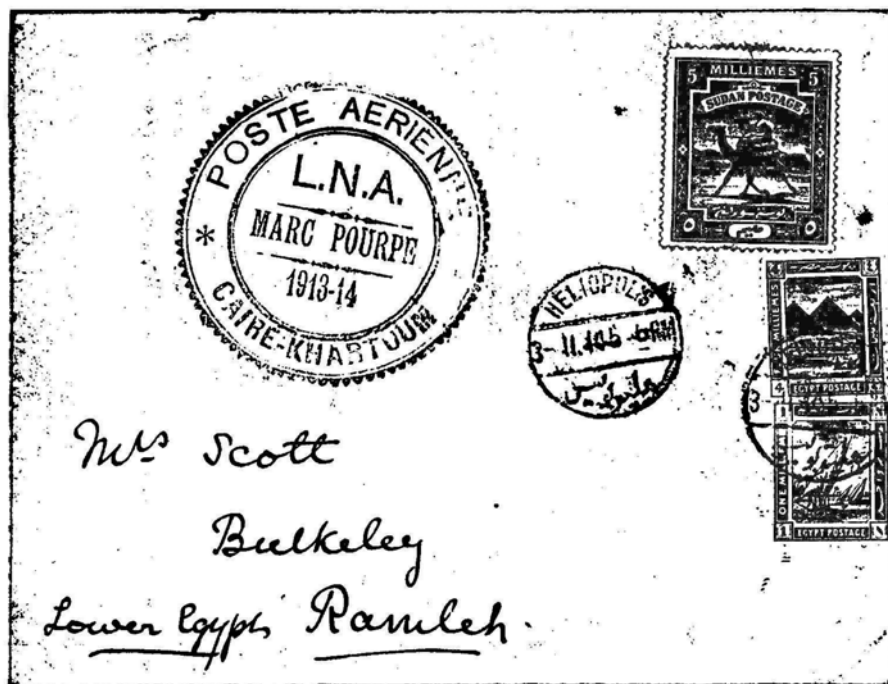 POSTE AERIENNE
L.N.A.
MARC POURPE
1913-14
CAIRE-KHARTOUM
5 MILLIEMES 5
SUDAN POSTAGE
HELIOPOLIS
3-
4
EGYPT POSTAGE
ONE MILLIEME
1 EGYPT POSTAGE
Mrs Scott
Bulkeley
Lower Egypt Ramleh.